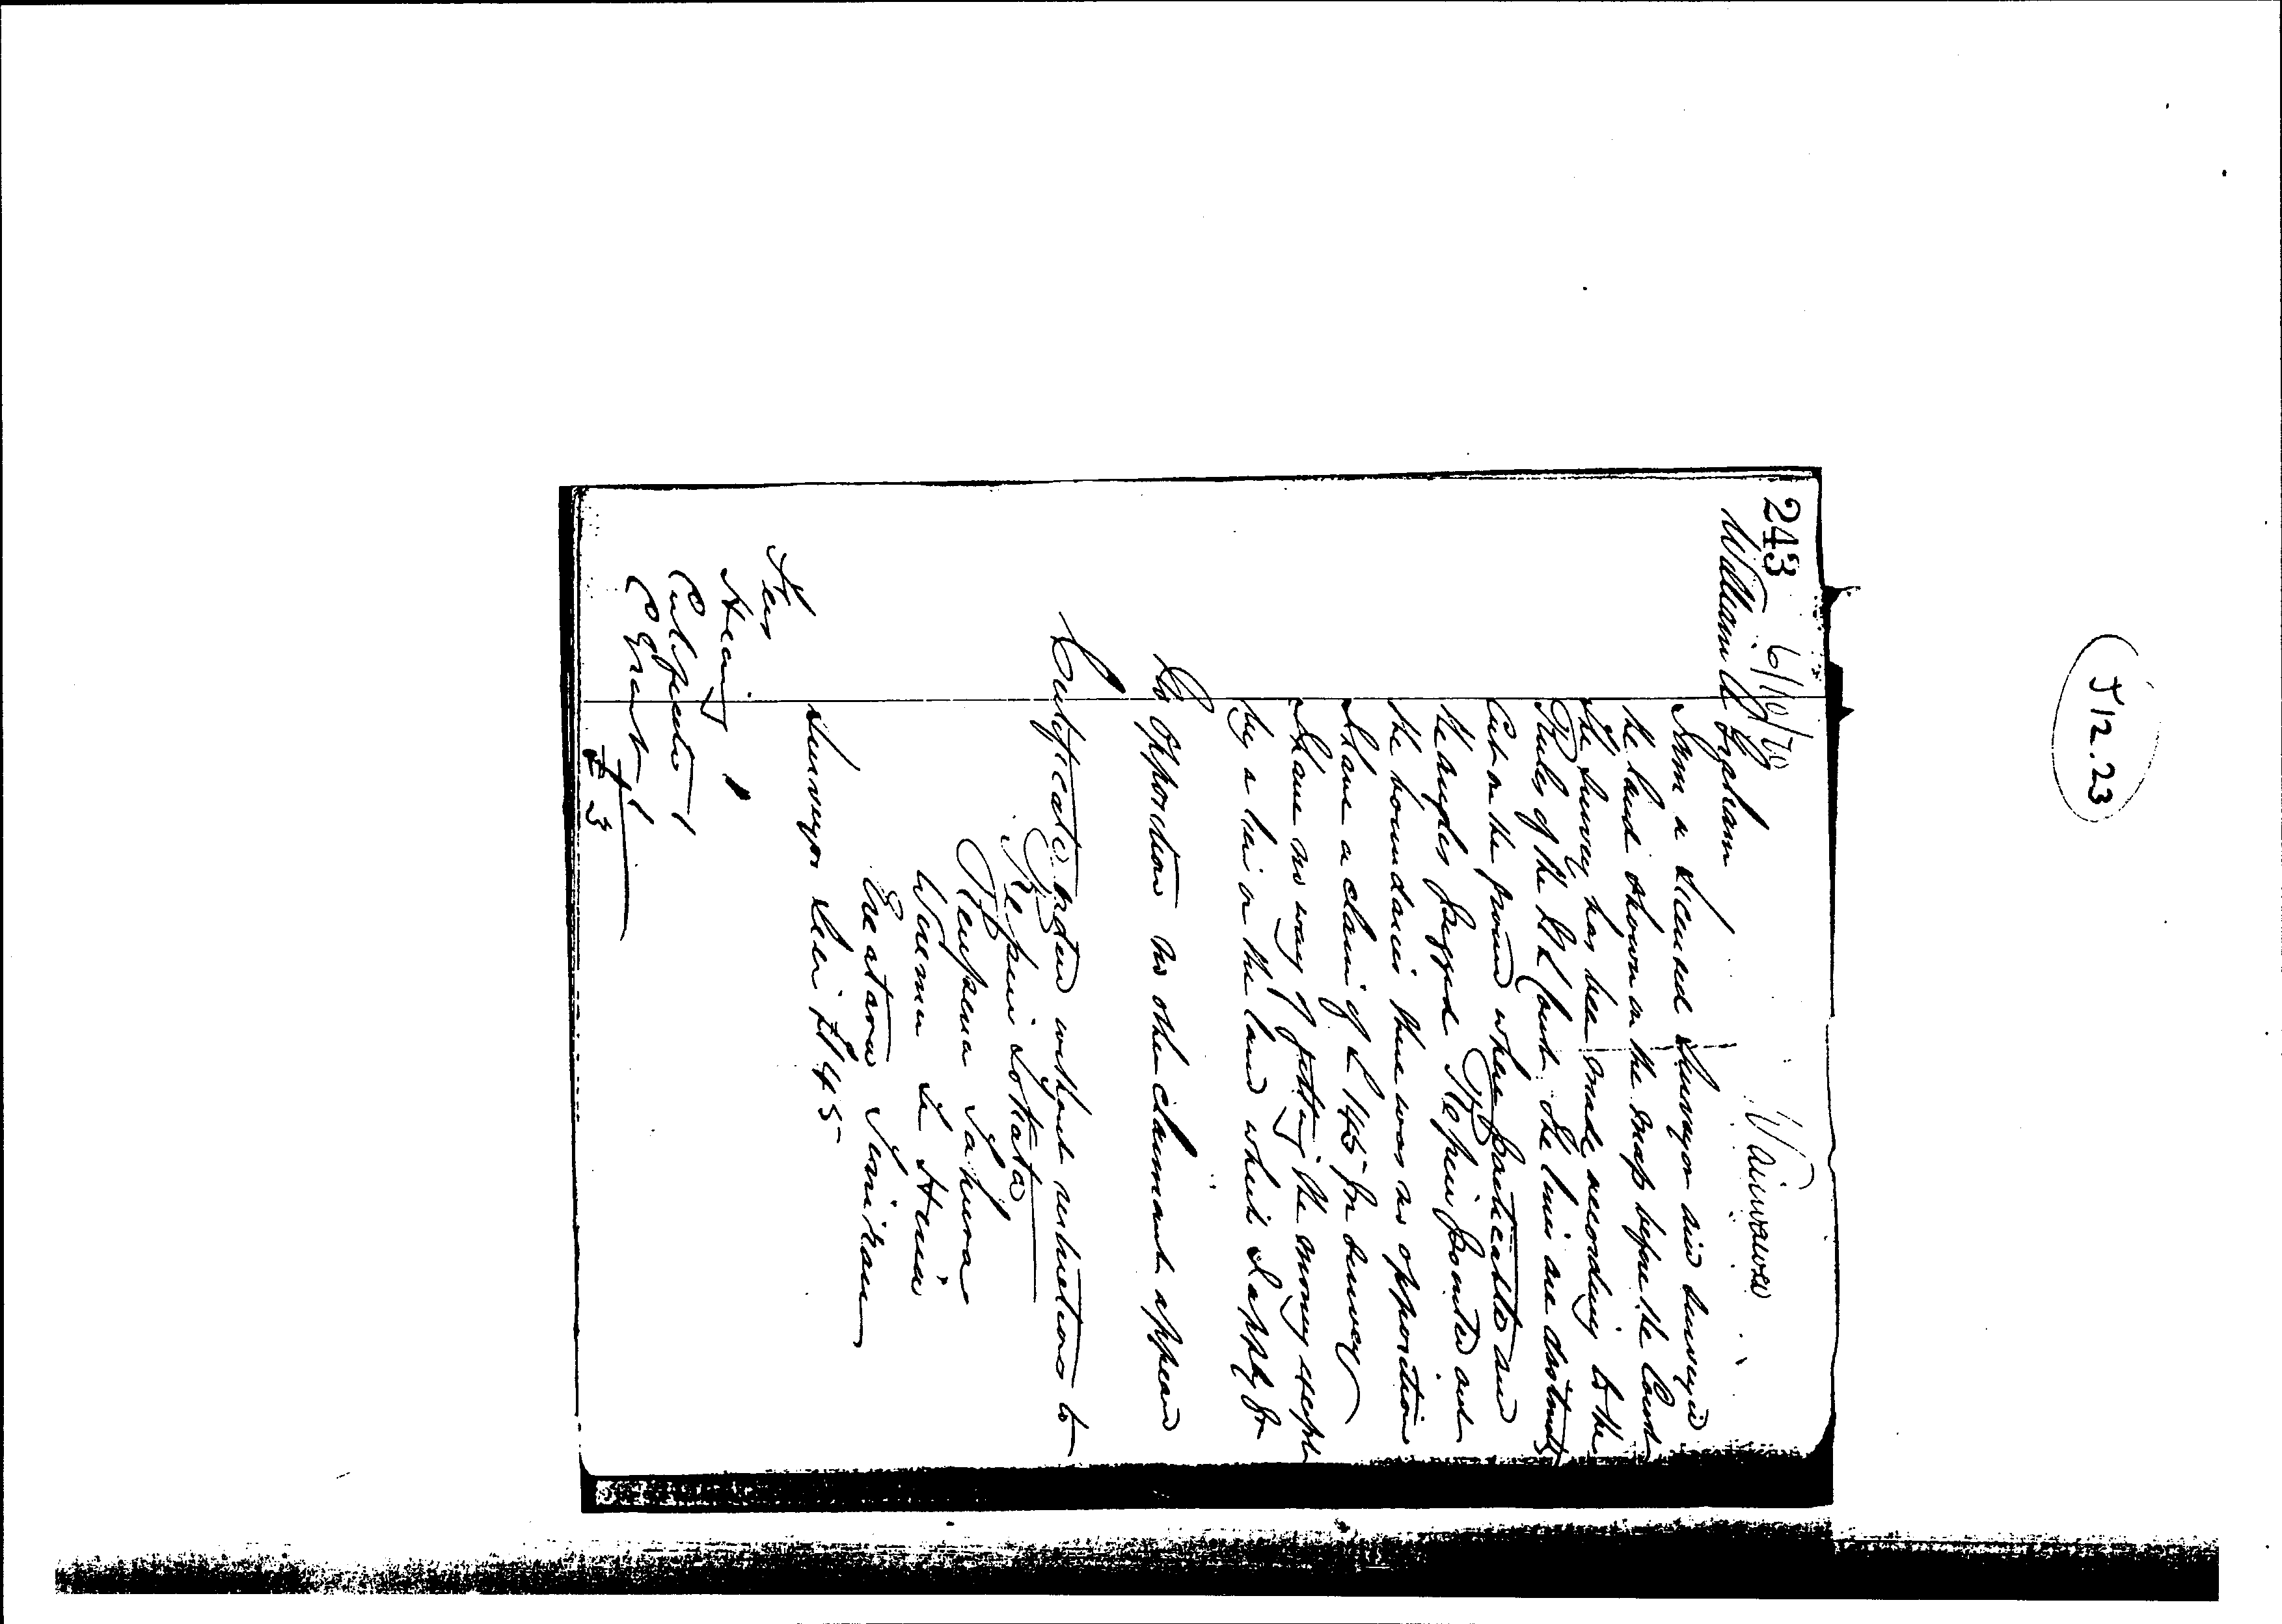 J12.23
243 6/10/70
Waiwawa
William
I am a Licensed Surveyor and surveyed
the land shown on the map before the Court
The survey has been made according to the
Rules of the N L Court. The lines are distinctly
Cut on the ground where practicable and
the angles pegged Repeni pointed out
the boundaries there was no opposition
I have a claim of £145 for survey
I have no way of getting the money except
by a lien on the land which I apply for
No opposition no other claimants appeared
Certificate ordered without restrictions to
Repeni
Wiremu Te
Surveyors Lien £145
Fees
Hearing 1
Certificate 1
C Grant 1
£ 3